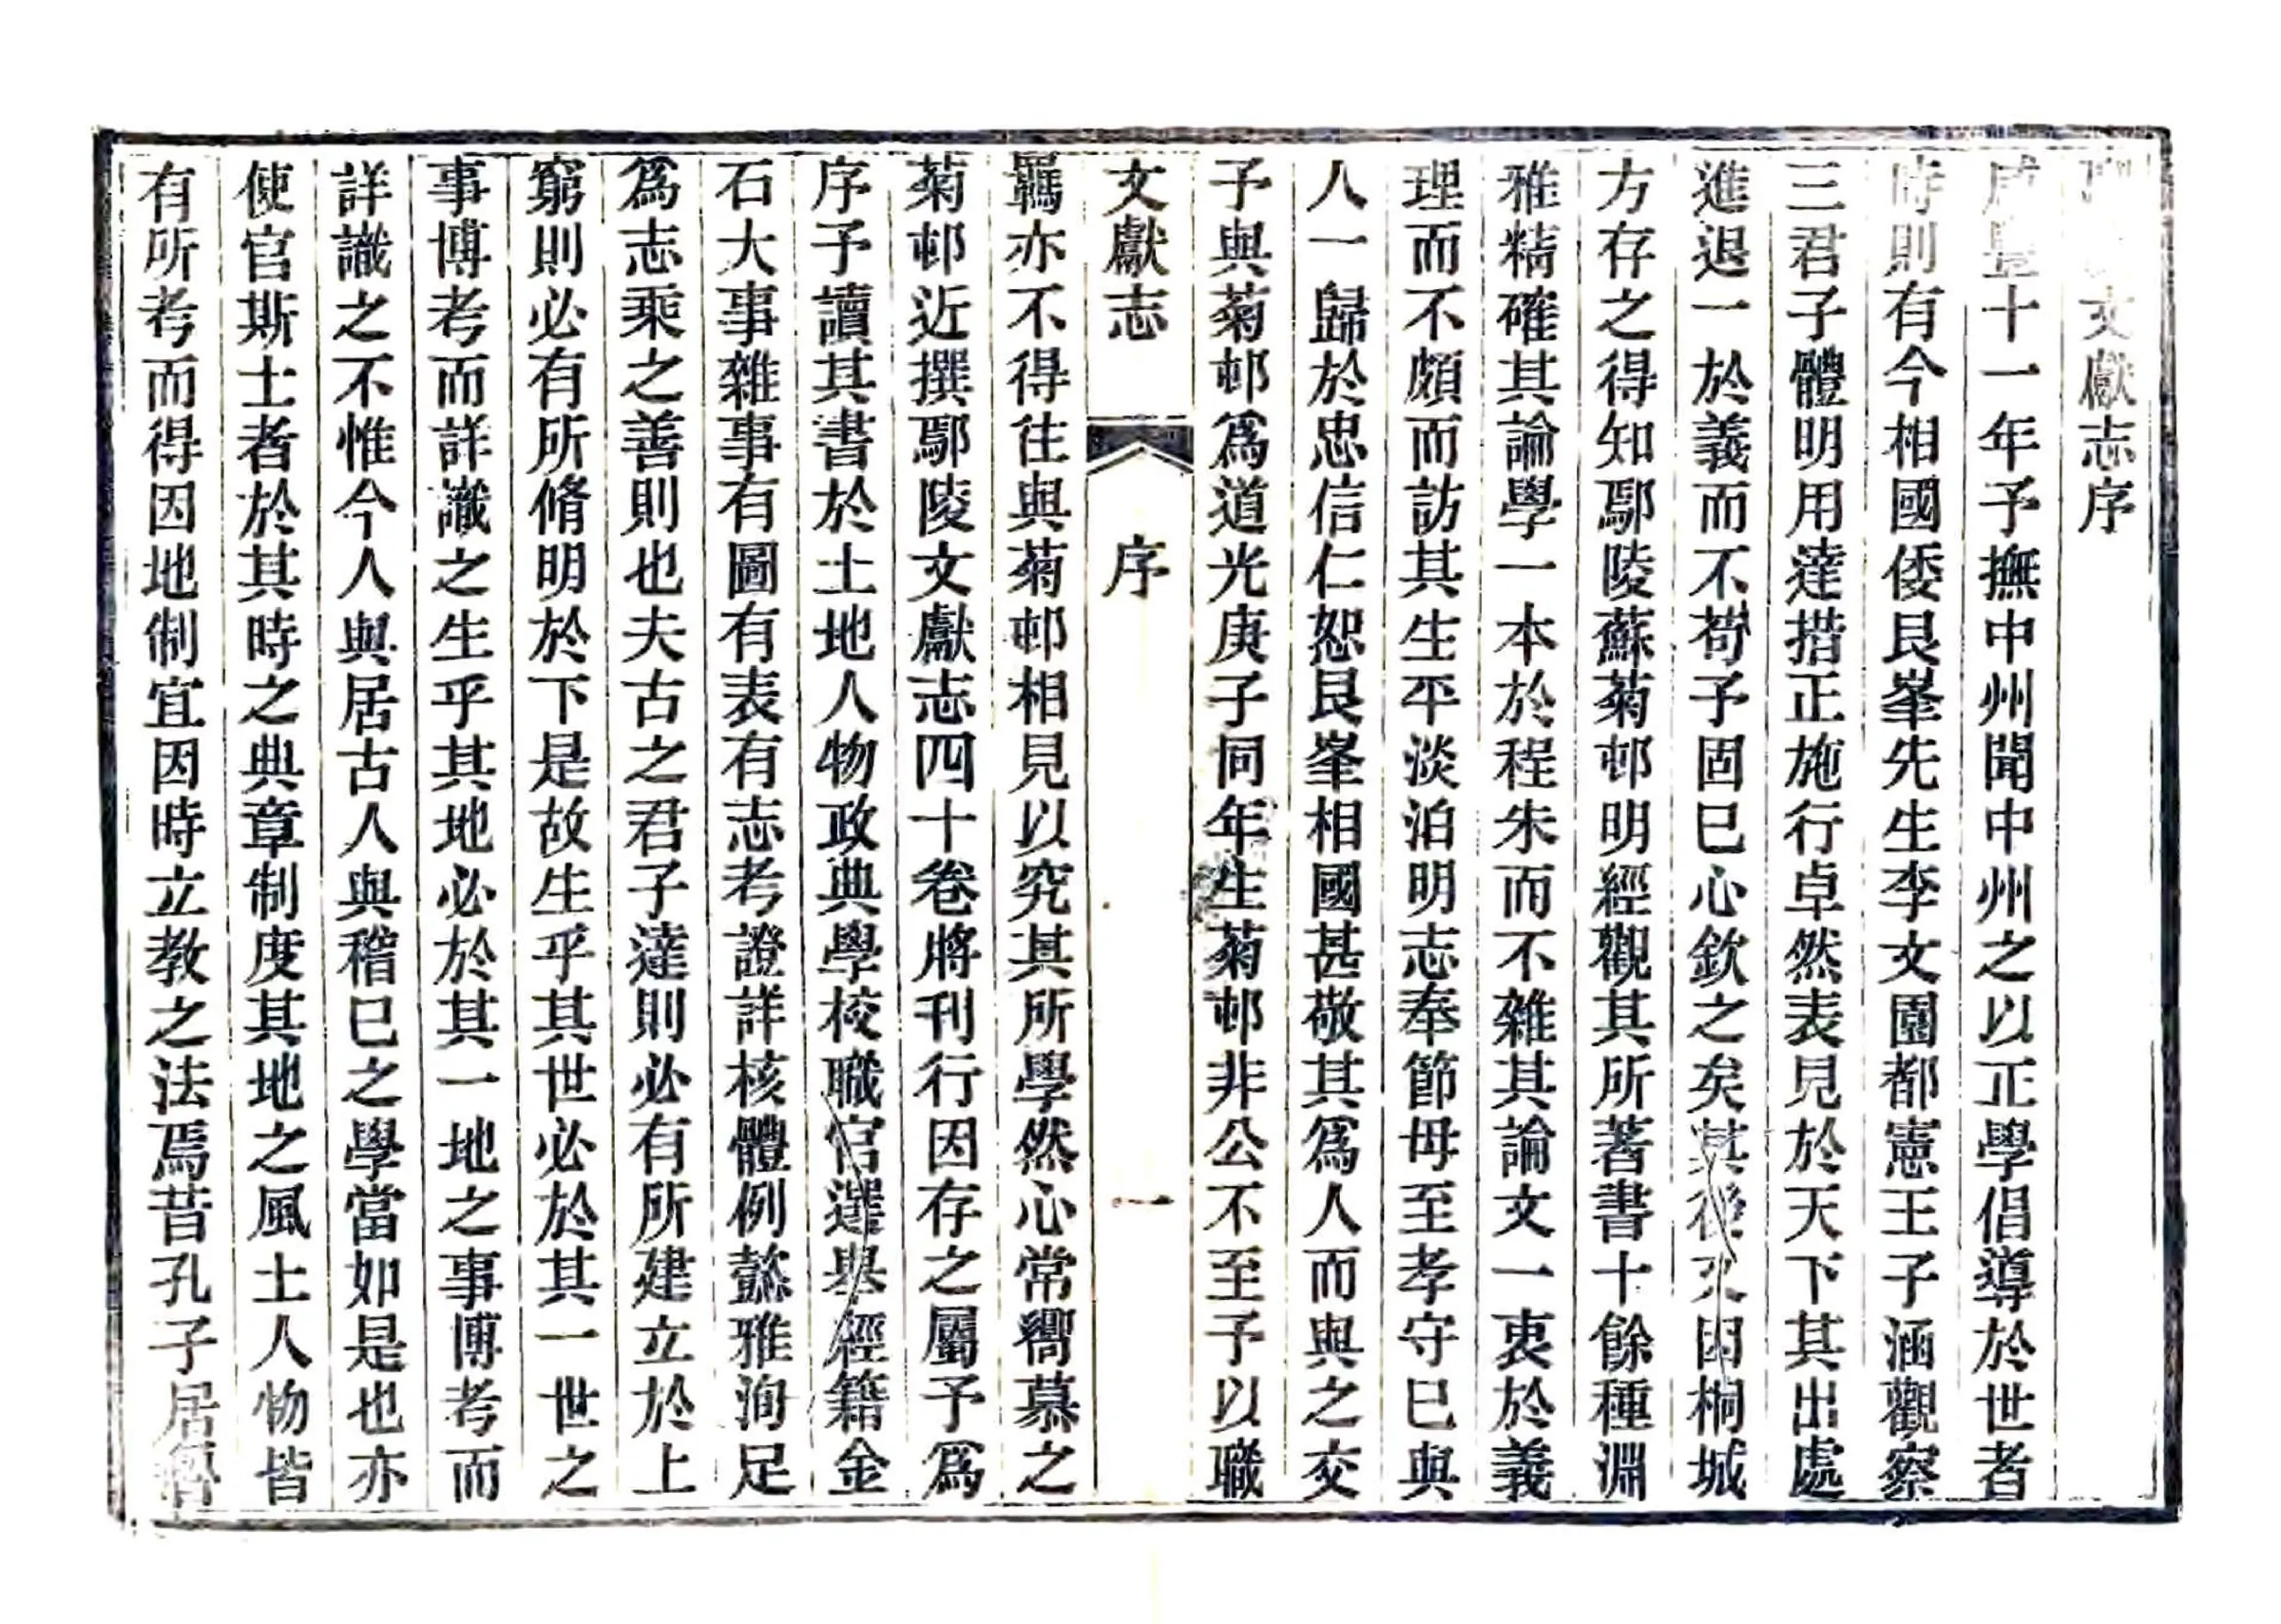 文獻志序
咸豐十一年予撫中州聞中州之以正學倡導於世者
時則有今相國倭艮峯先生李文園都憲王子涵觀察
三君子體明用達措正施行卓然表見於天下其出處
進退一於義而不苟予固已心欽之矣其後又因桐城
方存之得知鄢陵蘇菊邨明經觀其所著書十餘種淵
雅精確其論學一本於程朱而不雜其論文一衷於義
理而不頗而訪其生平淡泊明志奉節母至孝守已與
人一歸於忠信仁恕艮峯相國甚敬其爲人而與之交
子與菊邨爲道光庚子同年生菊邨非公不至予以職
文獻志 序 一
羈亦不得往與菊邨相見以究其所學然心常嚮慕之
菊邨近撰鄢陵文獻志四十卷將刊行因存之屬予爲
序予讀其書於土地人物政典學校職官選舉經籍金
石大事雜事有圖有表有志考證詳核體例懿雅洵足
爲志乘之善則也夫古之君子達則必有所建立於上
窮則必有所脩明於下是故生乎其世必於其一世之
事博考而詳識之生乎其地必於其一地之事博考而
詳識之不惟今人與居古人與稽已之學當如是也亦
使官斯土者於其時之典章制度其地之風土人物皆
有所考而得因地制宜因時立教之法焉昔孔子居魯